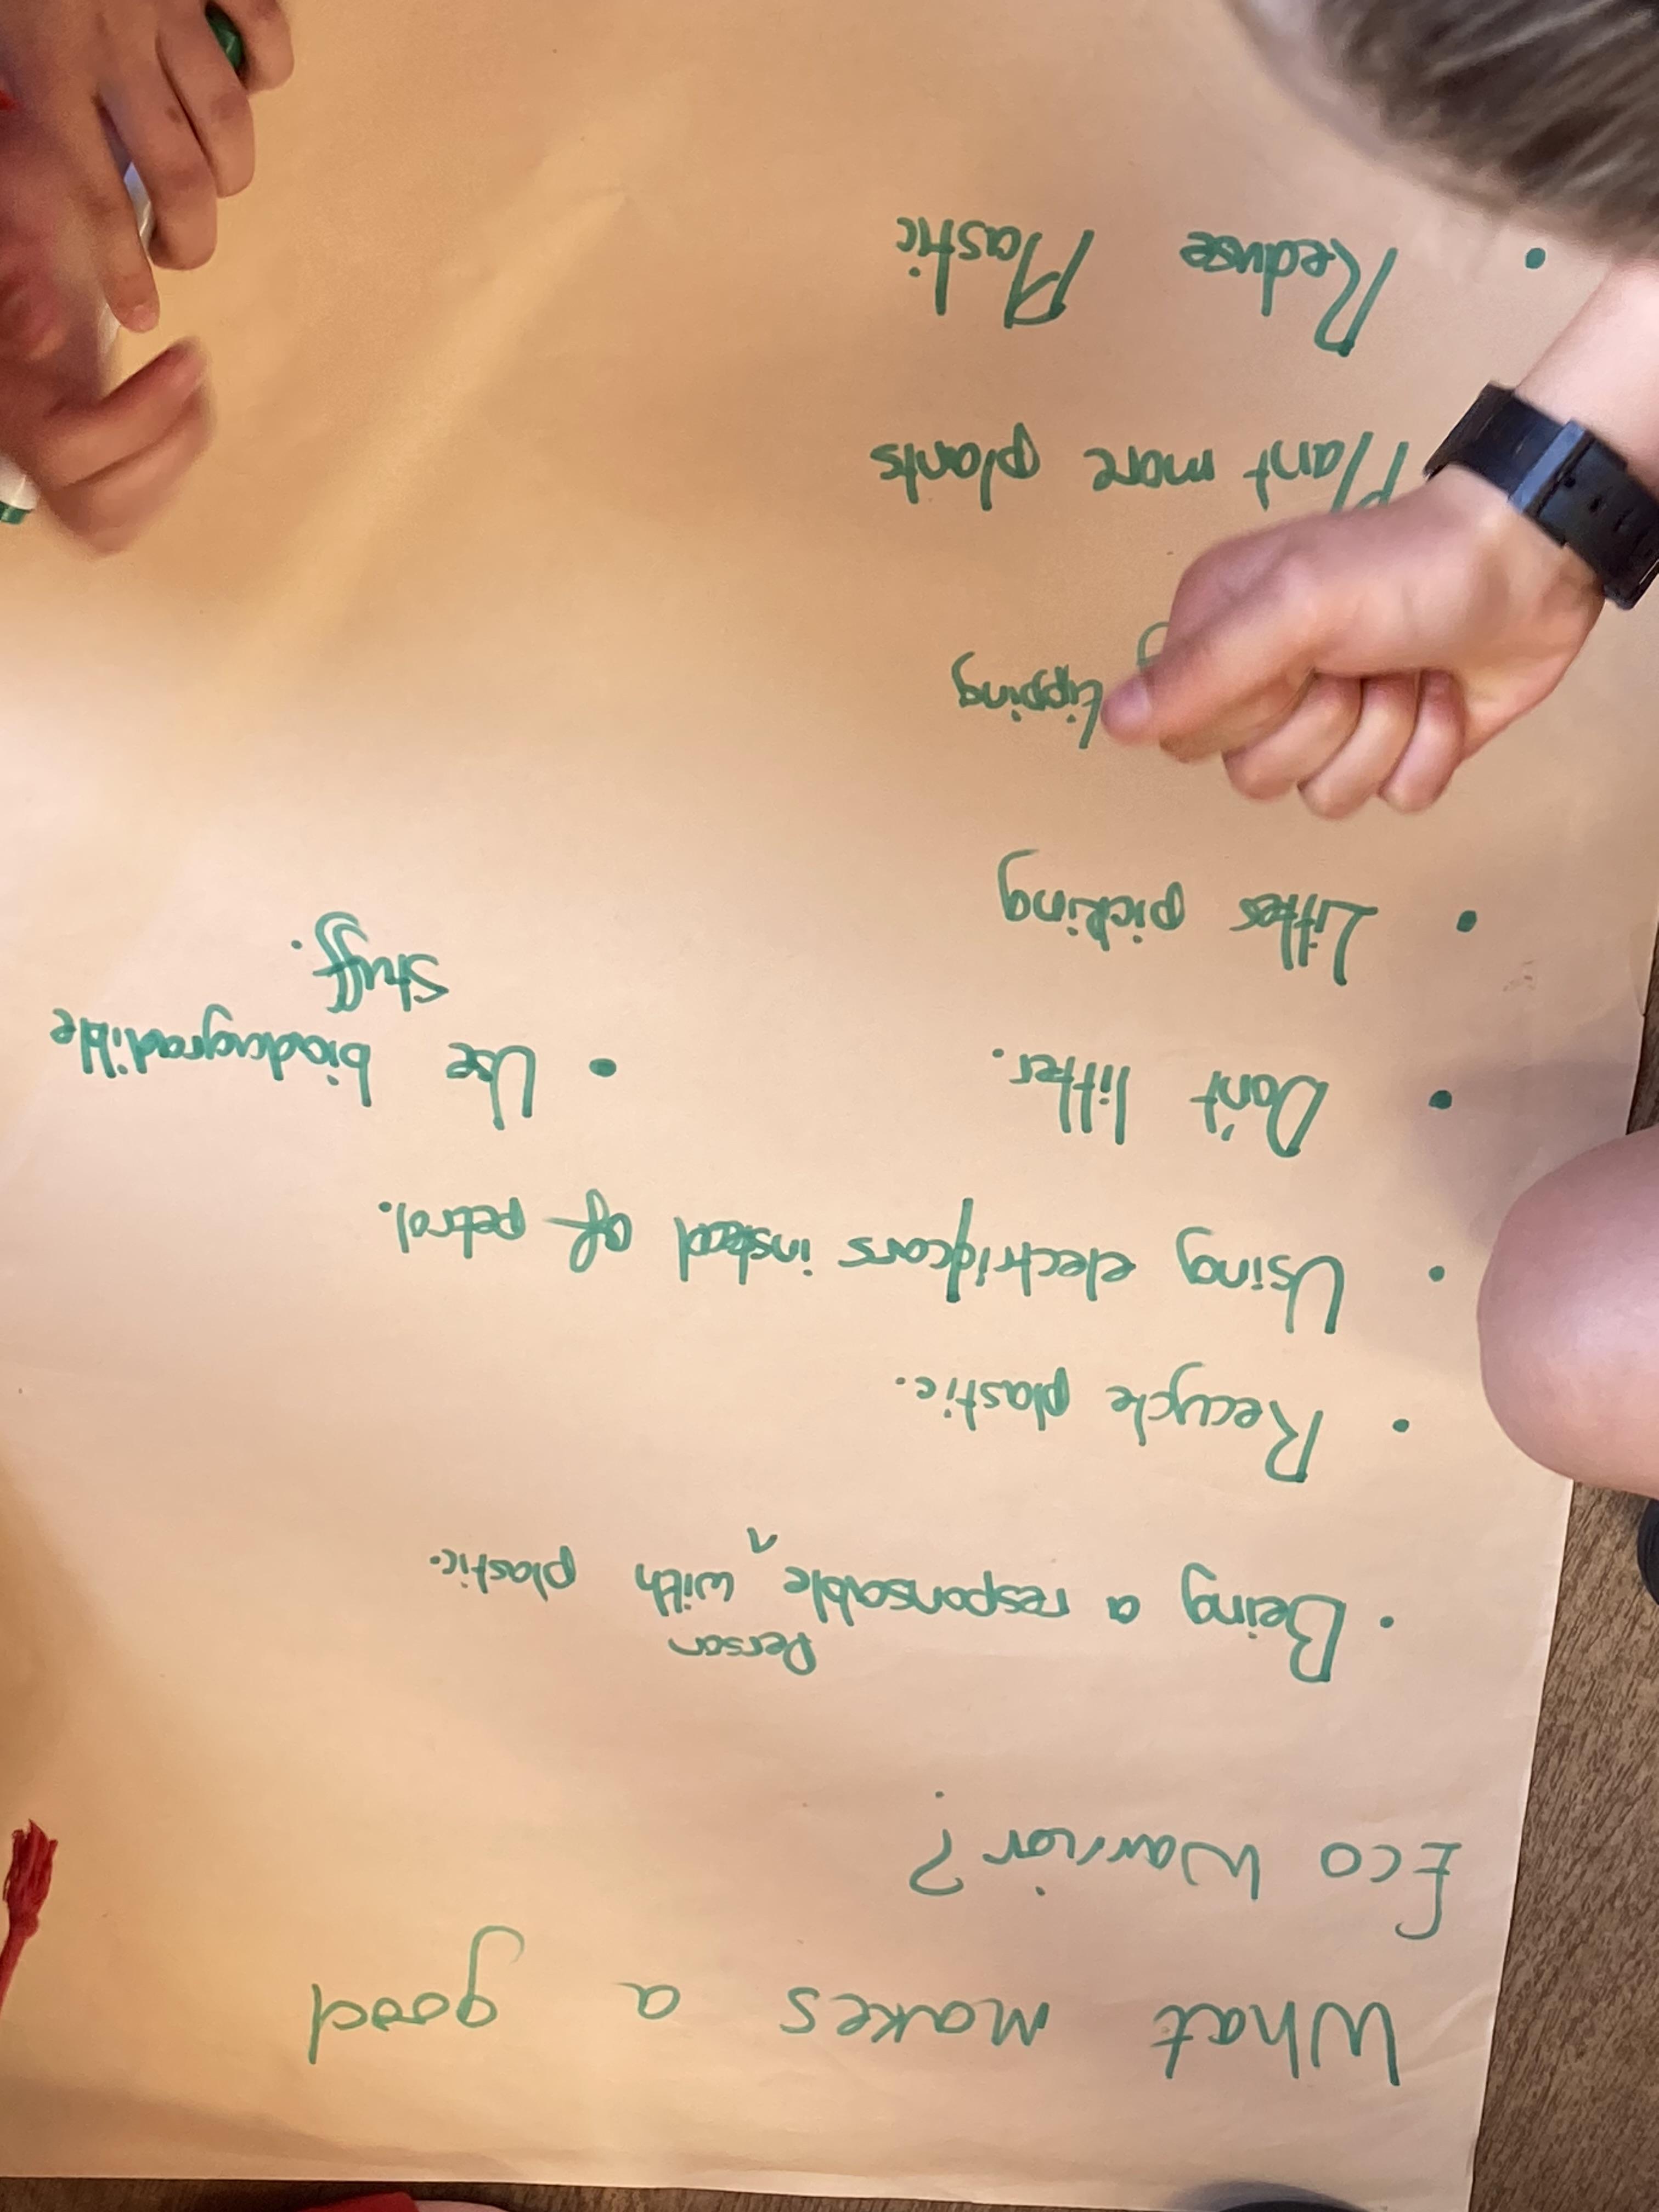 What makes a good
Eco Warrior?
Person
• Being a responsable ^ with plastic.
• Recycle plastic.
• Using electric cars instead of petrol.
• Don't litter.
• Use biodagradible
stuff.
• Litter picking
tipping
Plant more plants
• Reduse Plastic